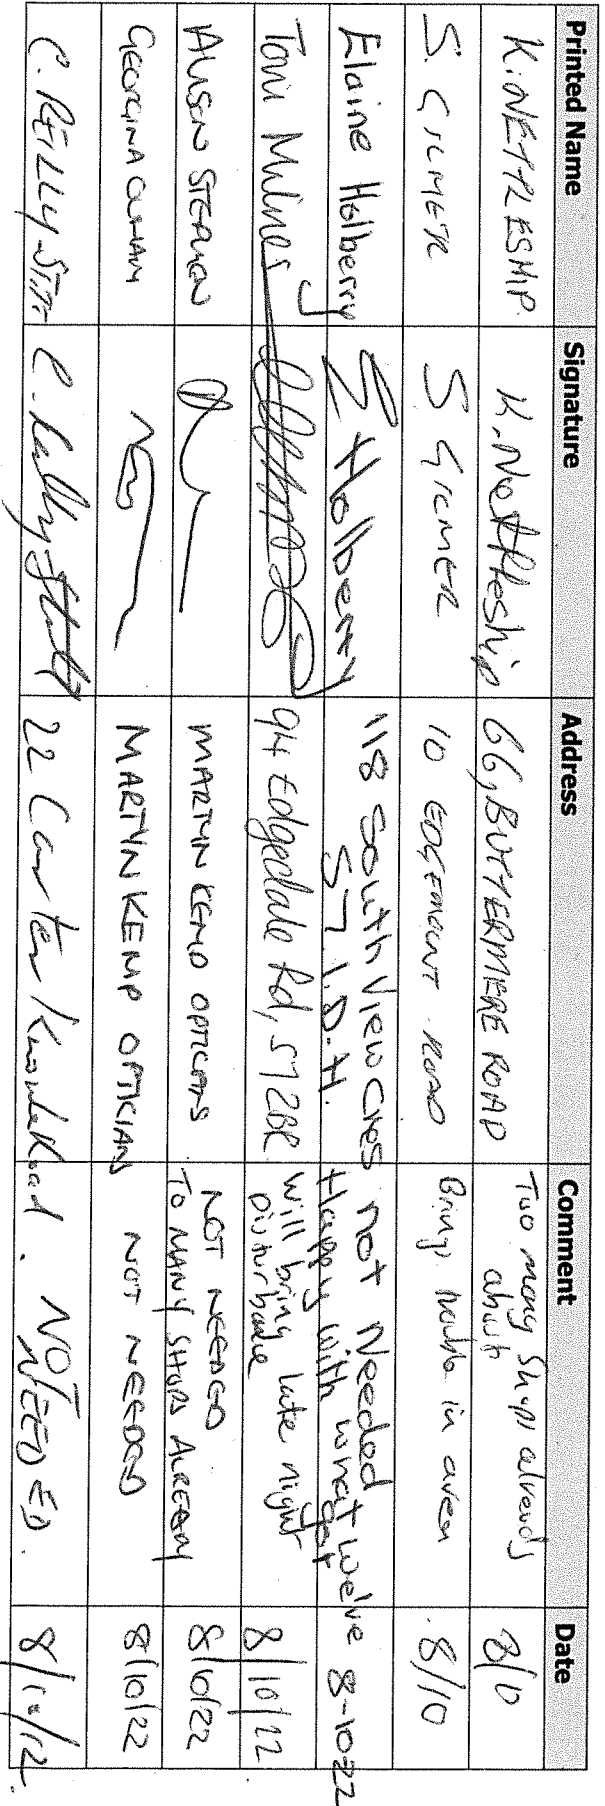 Printed Name Signature Address Comment Date
K. NETTLESHIP K. Nettleship 66, BUTTERMERE ROAD Two many Shops already about 8/10
S. GILMER S GILMER 10 EDGEMOUNT ROAD Brings trouble in area 8/10
Elaine Holberry E Holberry 118 South View Cres S7 1.D.H. not Needed Happy with what we've got 8-10-22
Toni Milnes 94 Edgedale Rd, S7 2BR will bring late night disturbance 8/10/22
ALISON MARTYN KEMP OPTICIANS NOT NEEDED TO MANY SHOPS ALREADY 8/10/22
GEORGINA MARTYN KEMP OPTICIAN NOT NEEDED 8/10/22
C. REILLY-STITT C. Reilly-Stitt 22 Carter Knowle Road. NOT NEEDED. 8/10/